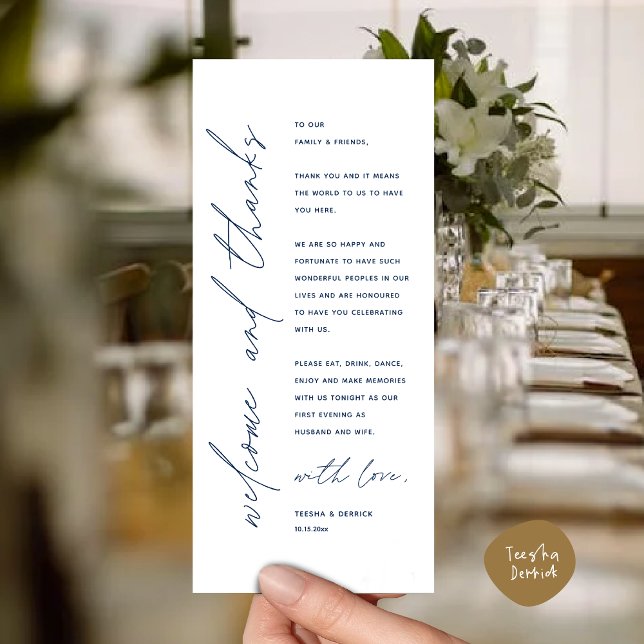 welcome and thanks
TO OUR
FAMILY & FRIENDS,
THANK YOU AND IT MEANS
THE WORLD TO US TO HAVE
YOU HERE.
WE ARE SO HAPPY AND
FORTUNATE TO HAVE SUCH
WONDERFUL PEOPLES IN OUR
LIVES AND ARE HONOURED
TO HAVE YOU CELEBRATING
WITH US.
PLEASE EAT, DRINK, DANCE,
ENJOY AND MAKE MEMORIES
WITH US TONIGHT AS OUR
FIRST EVENING AS
HUSBAND AND WIFE.
with love,
TEESHA & DERRICK
10.15.20xx
Teesha
Derrick